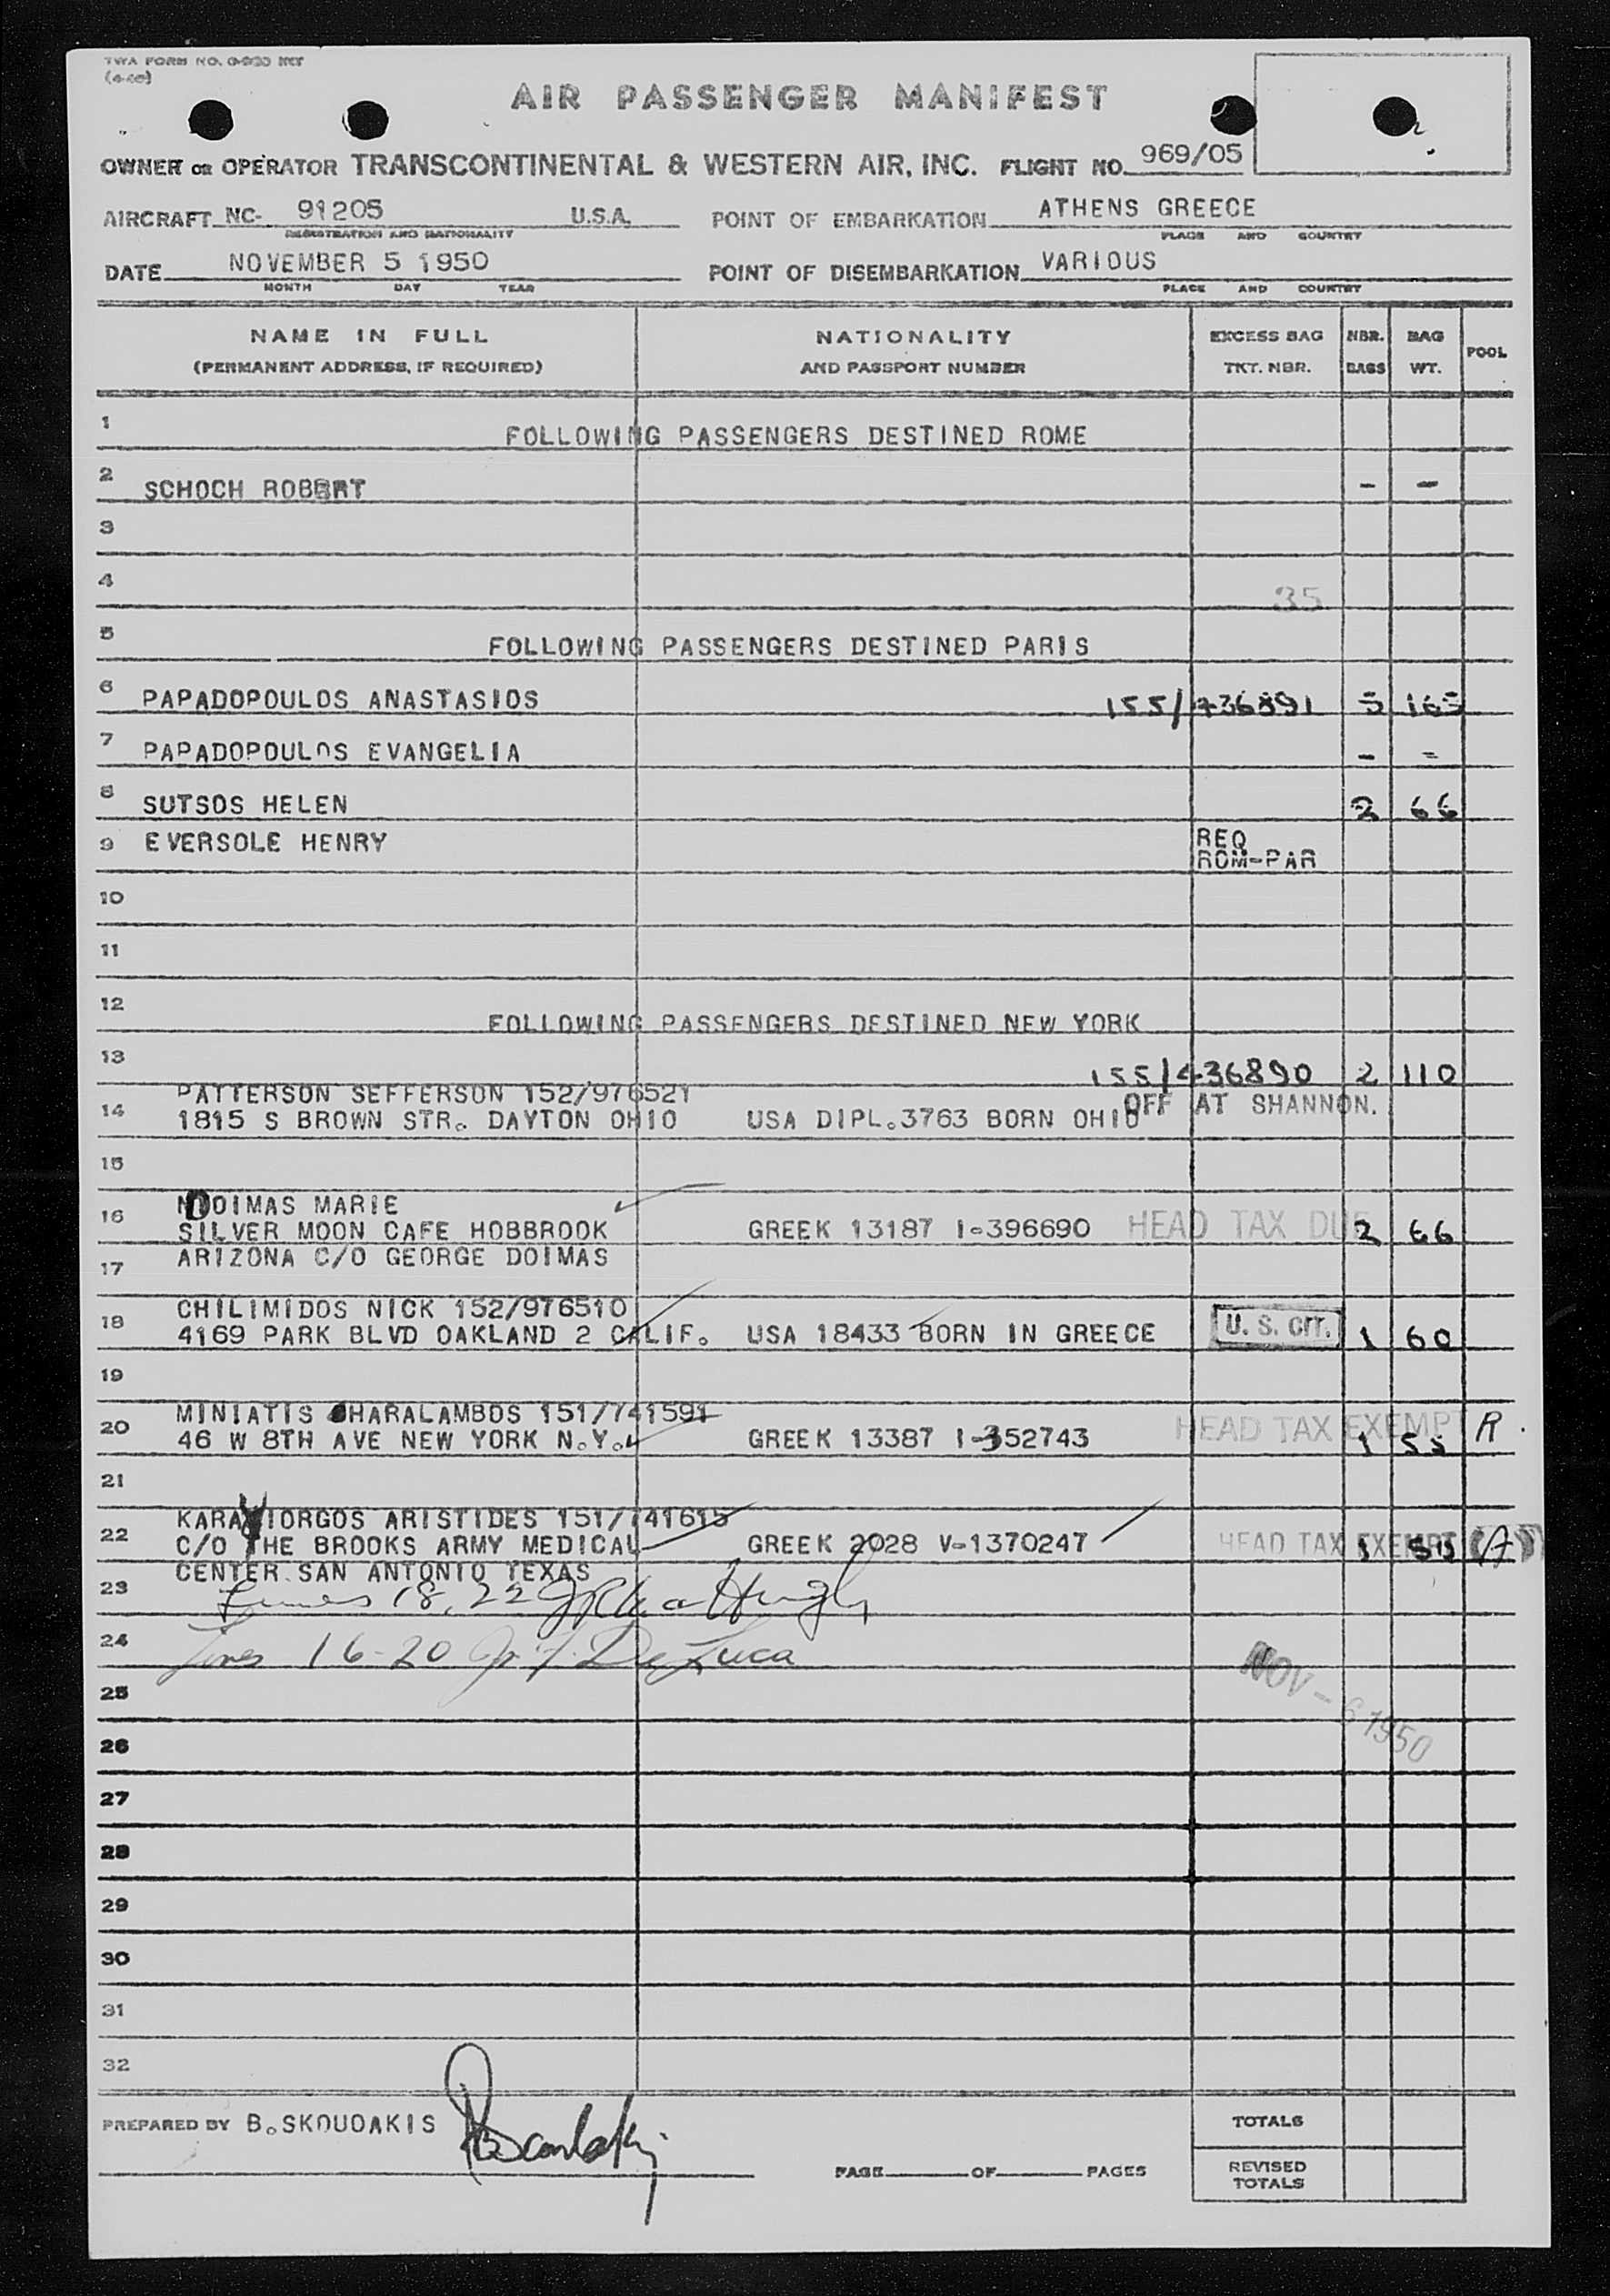 (4-49)
AIR PASSENGER MANIFEST
OWNER OR OPERATOR TRANSCONTINENTAL & WESTERN AIR, INC. FLIGHT NO. 969/05
AIRCRAFT NC- 91205 U.S.A. POINT OF EMBARKATION ATHENS GREECE
REGISTRATION AND NATIONALITY PLACE AND COUNTRY
DATE NOVEMBER 5 1950 POINT OF DISEMBARKATION VARIOUS
MONTH DAY YEAR PLACE AND COUNTRY
NAME IN FULL NATIONALITY EXCESS BAG NBR. BAG POOL
(PERMANENT ADDRESS, IF REQUIRED) AND PASSPORT NUMBER TKT. NBR. BAGS WT.
1 FOLLOWING PASSENGERS DESTINED ROME
2 SCHOCH ROBERT - -
3
4 35
5 FOLLOWING PASSENGERS DESTINED PARIS
6 PAPADOPOULOS ANASTASIOS 155/436891
7 PAPADOPOULOS EVANGELIA - -
8 SUTSOS HELEN 2 66
9 EVERSOLE HENRY REQ
ROM-PAR
10
11
12 FOLLOWING PASSENGERS DESTINED NEW YORK
13 155/436890 2 110
PATTERSON SEFFERSON 152/976521 OFF AT SHANNON.
14 1815 S BROWN STR. DAYTON OHIO USA DIPL.3763 BORN OHIO
15
DOIMAS MARIE
16 SILVER MOON CAFE HOBBROOK GREEK 13187 I-396690 HEAD TAX DUE 2 66
17 ARIZONA C/O GEORGE DOIMAS
CHILIMIDOS NICK 152/976510
18 4169 PARK BLVD OAKLAND 2 CALIF. USA 18433 BORN IN GREECE U. S. CIT. 1 60
19
MINIATIS CHARALAMBOS 151/741591
20 46 W 8TH AVE NEW YORK N.Y. GREEK 13387 I-352743 HEAD TAX EXEMPT 1 55 R
21
KARAYIORGOS ARISTIDES 151/741615
22 C/O THE BROOKS ARMY MEDICAL GREEK 2028 V-1370247 HEAD TAX EXEMPT (A)
CENTER SAN ANTONIO TEXAS
23 Lines 18, 22
24 Lines 16-20 De Luca
25 NOV - 6 1950
26
27
28
29
30
31
32
PREPARED BY B.SKOUOAKIS TOTALS
PAGE OF PAGES REVISED
TOTALS